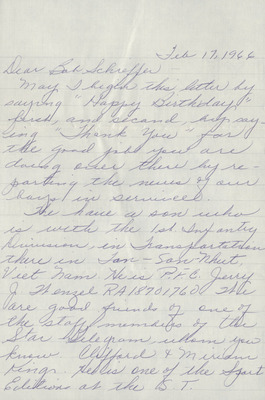 Feb 17, 1966
Dear Bob Schieffer
May I begin this letter by
saying "Happy Birthday,"
first, and second, by say-
ing "Thank You" for
the good job you are
doing over there by re-
porting the news of our
boys in service.
We have a son who
is with the 1st Infantry
Division, in Transportation
there in Tan-Son-Nhut,
Viet Nam. He is P.F.C. Jerry
J. RA18701760. We
are good friends of one of
the staff members of the
Star Telegram, whom you
know. Clifford & Miriam
King. He is one of the Sport
Editors at the S.T.